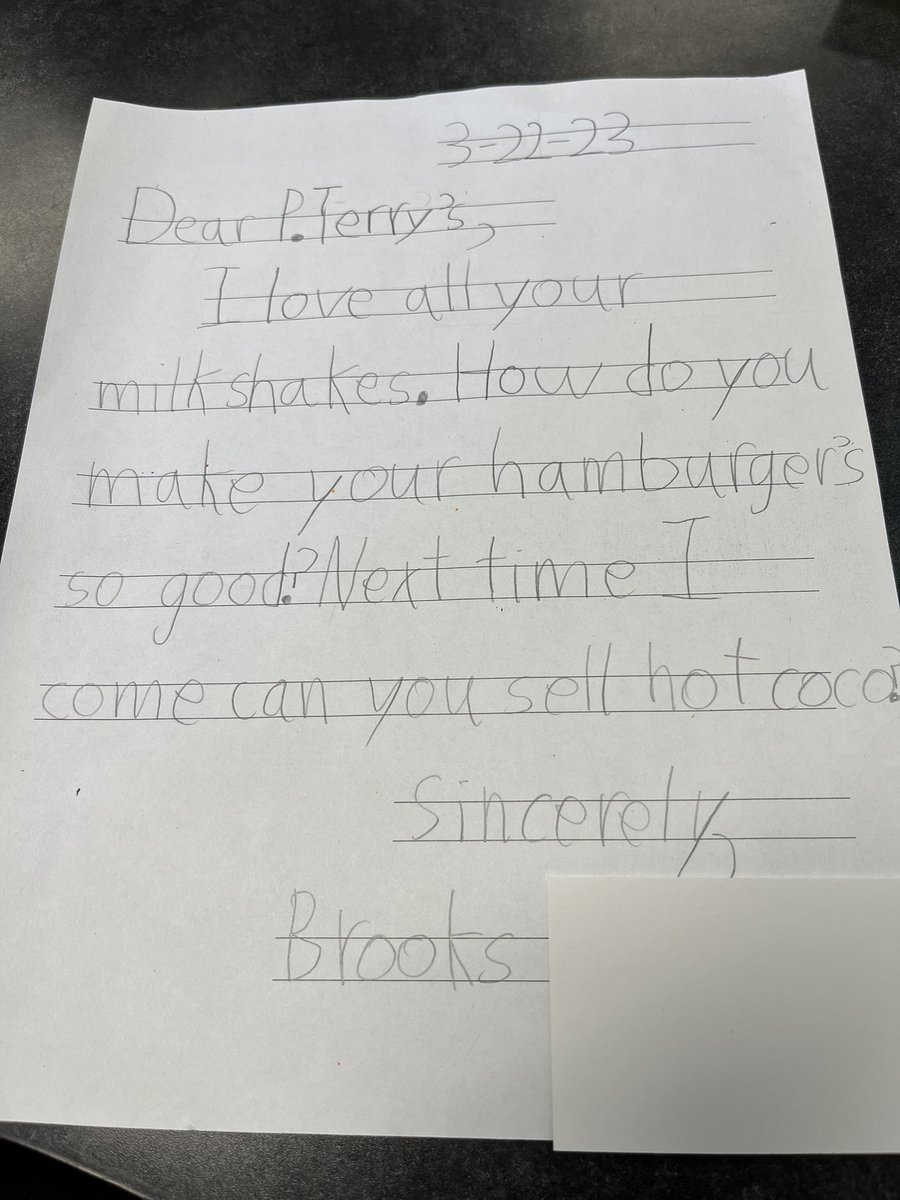 3-22-23
Dear P.Terry's,
I love all your
milkshakes. How do you
make your hamburger's
so good? Next time I
come can you sell hot coco?
Sincerely,
Brooks